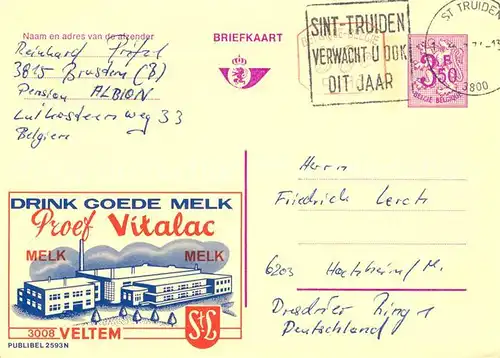 Naam en adres van de afzender
Reinhard
3815 Brusden (B)
Pension ALBION
weg 33
Belgien
BRIEFKAART
SINT-TRUIDEN
VERWACHT U OOK
DIT JAAR
ST TRUIDEN
3800
3F50
BELGIË BELGIQUE
DRINK GOEDE MELK
Proef Vitalac
MELK MELK
3008 VELTEM
StL
PUBLIBEL 2593N
Herrn
Friedrich Lerch
6203 Hochheim/M.
Dresdner Ring 1
Deutschland